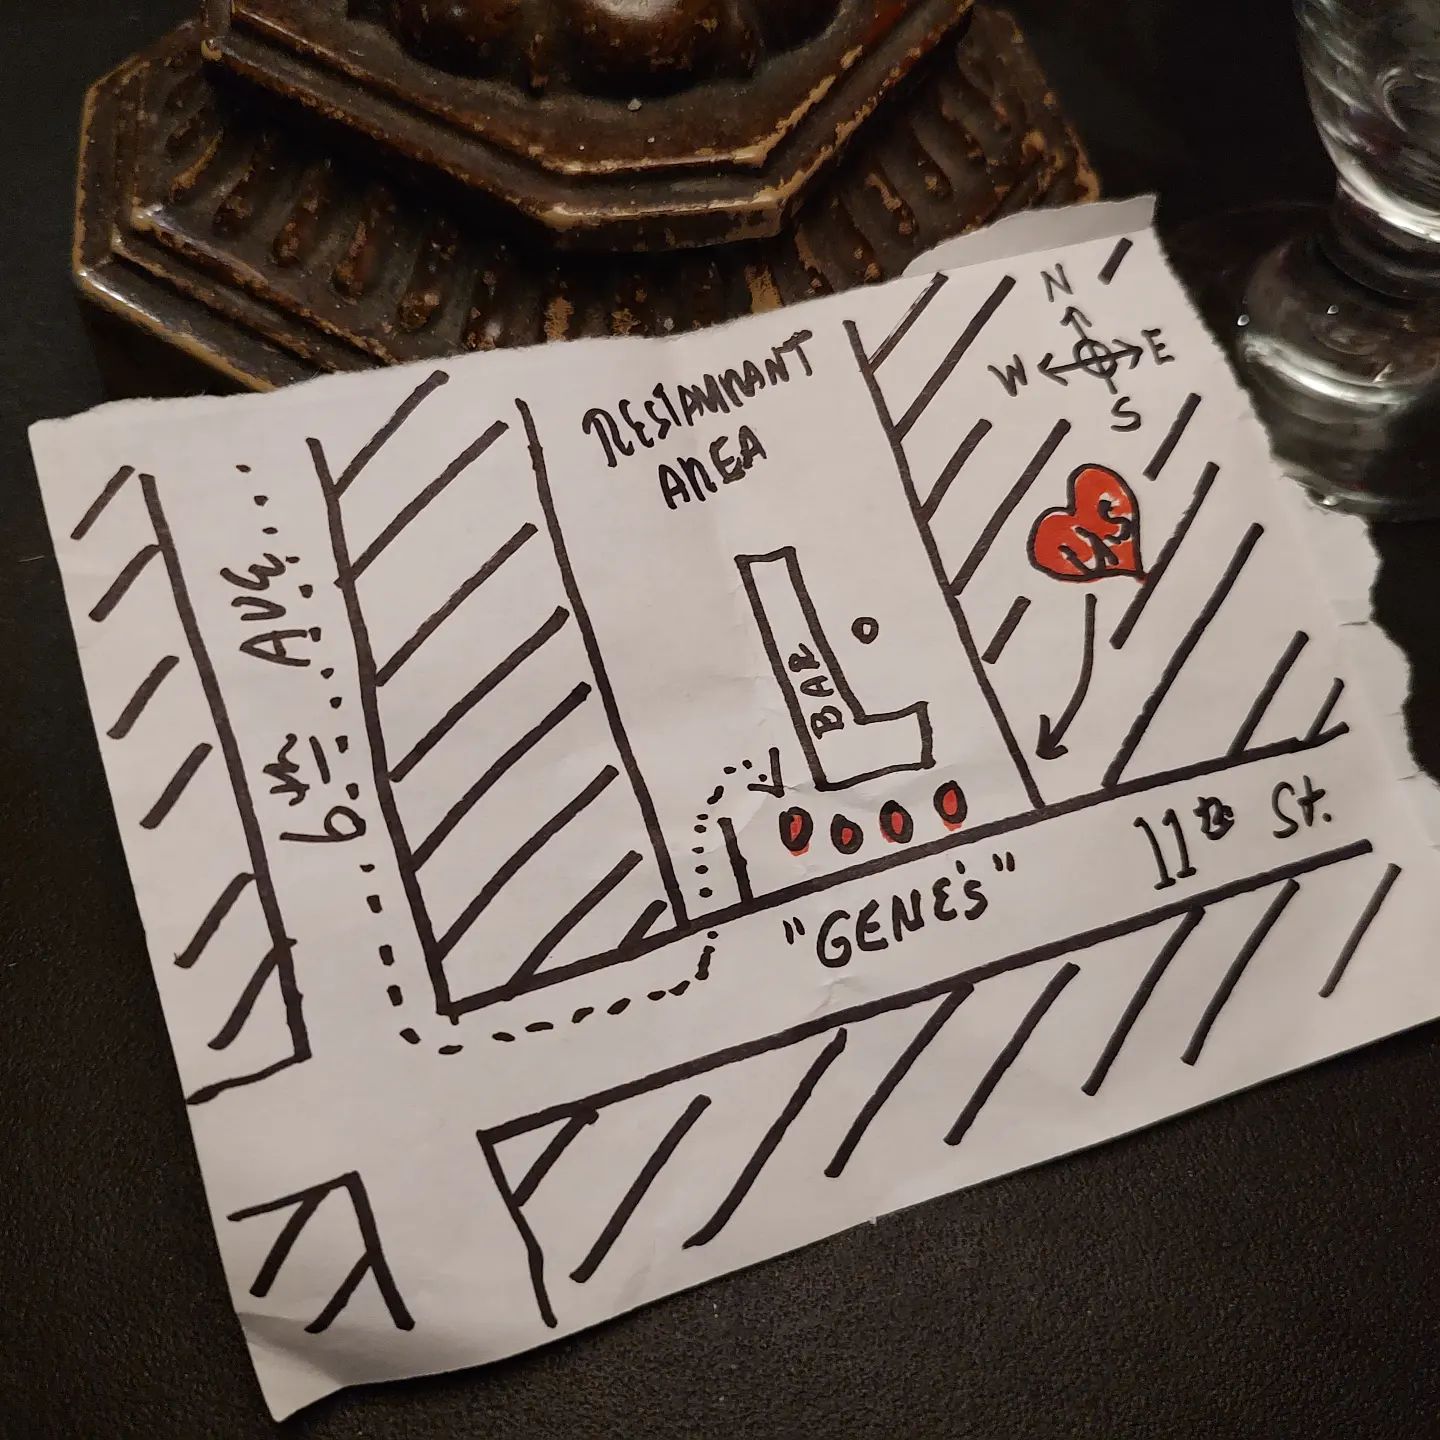 N
W E
S
RESTAURANT
AREA
US
6th AVE...
BAR
11th St.
"GENE'S"